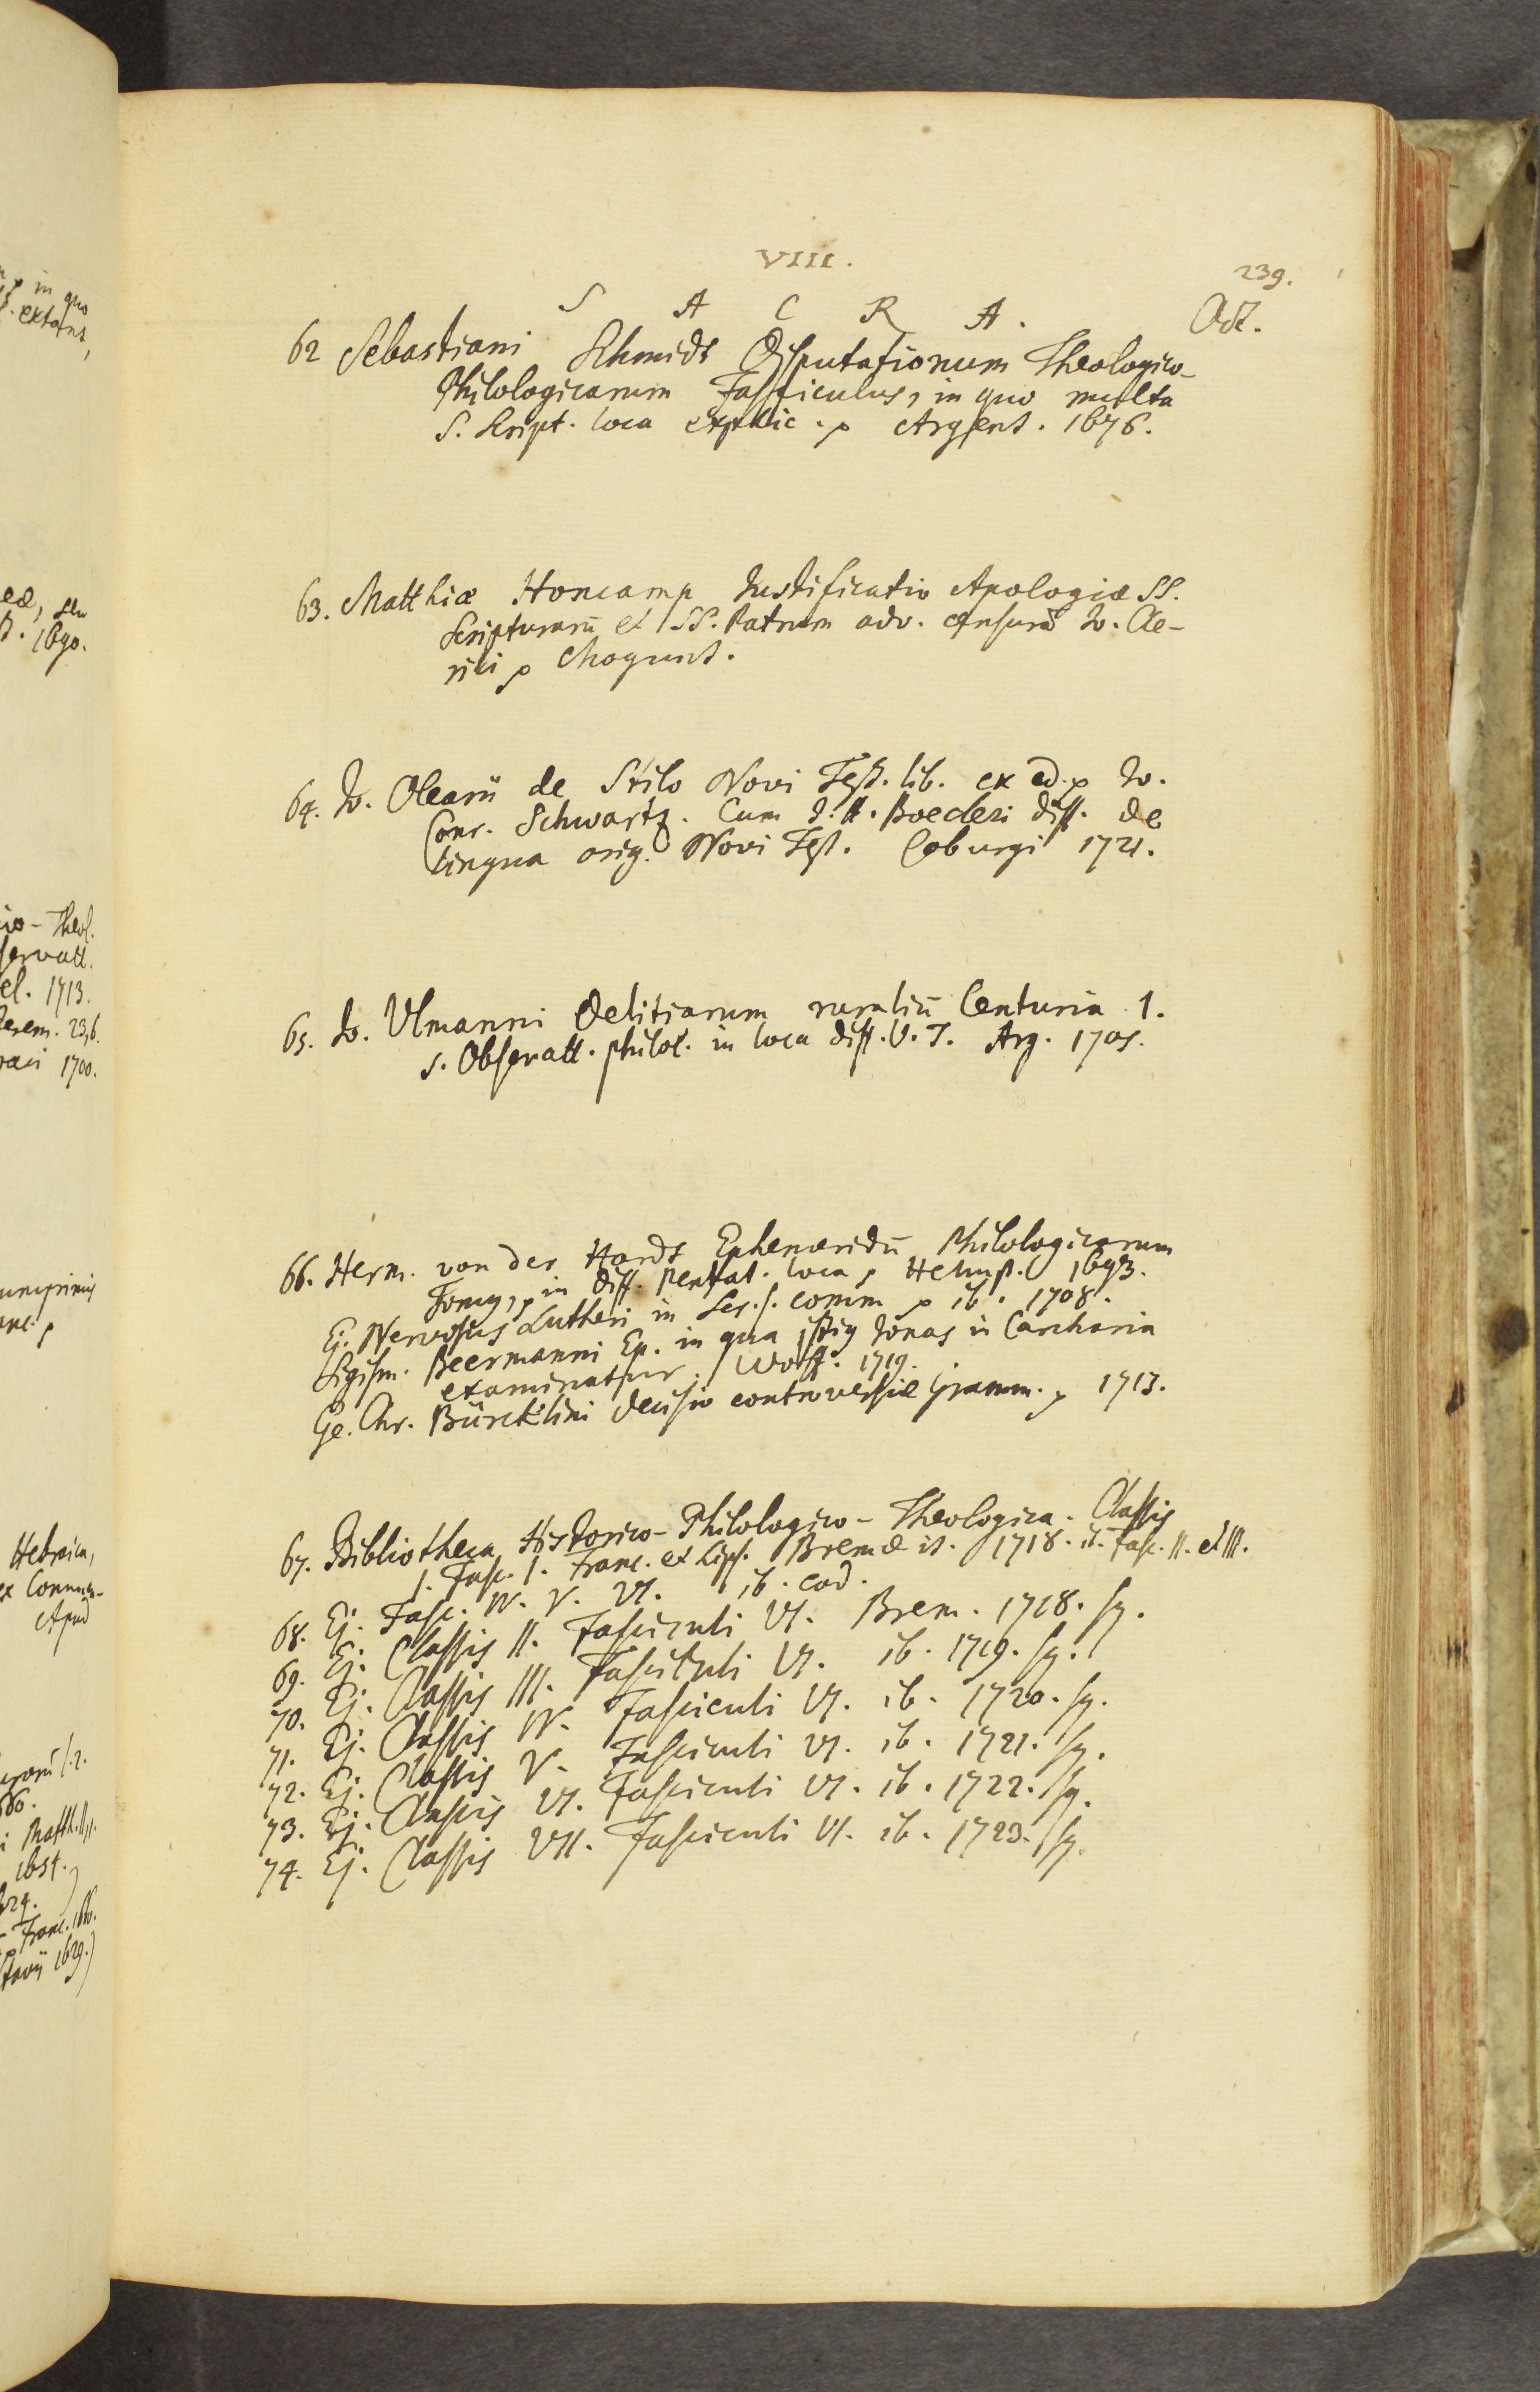 VIII.
239.
S A C R A.
Oct.
62 Sebastiani Schmidt Disputationum Theologico-
Philologicarum Fasciculus, in quo multa
S. Script. loca explic. p Argent. 1676.
63. Matthiæ Honcamp Justificatio Apologiæ SS.
Scripturarū et SS. Patrum adv. censurā Jo. Cle-
rici p Mogunt.
64. Jo. Olearii de Stilo Novi Test. lib. ex ed. p Jo.
Conr. Schwartz. Cum J. H. Boecleri diss. de
lingua orig. Novi Test. Coburgi 1721.
65. Jo. Ulmanni Delitiarum ruraliū Centuria 1.
s. Observatt. philol. in loca diff. V. T. Arg. 1705.
66. Herm. von der Hardt Ephemeridū Philologicarum
Tomus, p in diff. Pentat. loca p Helmst. 1693.
Ej. Nervosus Lutheri in Scr. s. comm p ib. 1708.
Sigism. Beermanni Ep. in qua Jonas in Carcharia
examinatur. Wolff. 1719.
Ge. Chr. Bürcklini Decisio controversiæ Gramm. p 1713.
67. Bibliotheca Historico-Philologico-Theologica. Classis
1. Fasc. 1. Franc. et Lips. Bremæ it. 1718. it. Fasc. II. et III.
68. Ej. Fasc. IV. V. VI. ib. eod.
69. Ej. Classis II. Fasciculi VI. Brem. 1718. sq.
70. Ej. Classis III. Fasciculi VI. ib. 1719. sq.
71. Ej. Classis IV. Fasciculi VI. ib. 1720. sq.
72. Ej. Classis V. Fasciculi VI. ib. 1721. sq.
73. Ej. Classis VI. Fasciculi VI. ib. 1722. sq.
74. Ej. Classis VII. Fasciculi VI. ib. 1723. sq.